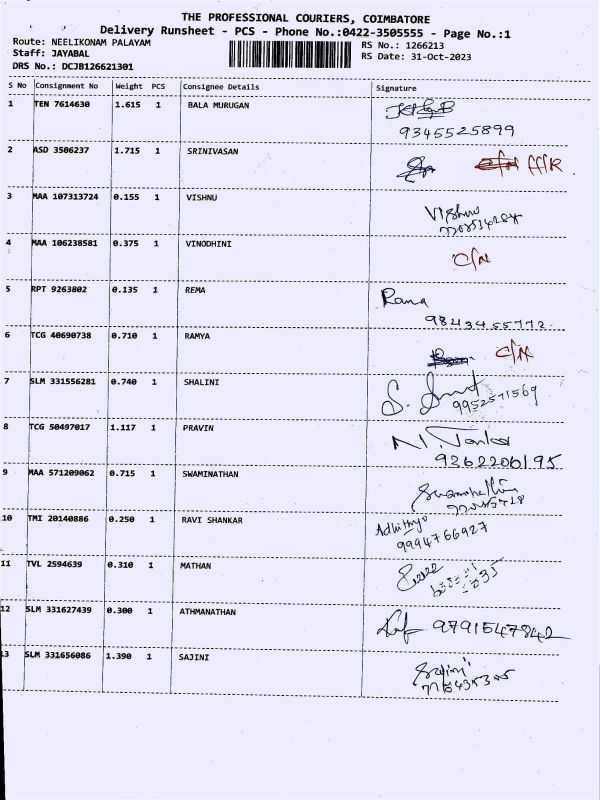 THE PROFESSIONAL COURIERS, COIMBATORE
Delivery Runsheet - PCS - Phone No.:0422-3505555 - Page No.:1
Route: NEELIKONAM PALAYAM
RS No.: 1266213
Staff: JAYABAL
RS Date: 31-Oct-2023
DRS No.: DCJB126621301
S No Consignment No Weight PCS Consignee Details Signature
1 TEN 7614630 1.615 1 BALA MURUGAN
9345525899
2 ASD 3506237 1.715 1 SRINIVASAN
3 MAA 107313724 0.155 1 VISHNU
Vishnu
4 MAA 106238581 0.375 1 VINODHINI
C/N
5 RPT 9263802 0.135 1 REMA
Rama
9843455772
6 TCG 40690738 0.710 1 RAMYA
C/N
7 SLM 331556281 0.740 1 SHALINI
9952571569
8 TCG 50497017 1.117 1 PRAVIN
9362206195
9 MAA 571209062 0.715 1 SWAMINATHAN
10 TMI 20140886 0.250 1 RAVI SHANKAR
9994766927
11 TVL 2594639 0.310 1 MATHAN
12 SLM 331627439 0.300 1 ATHMANATHAN
9791547842
13 SLM 331656086 1.390 1 SAJINI
Sajini